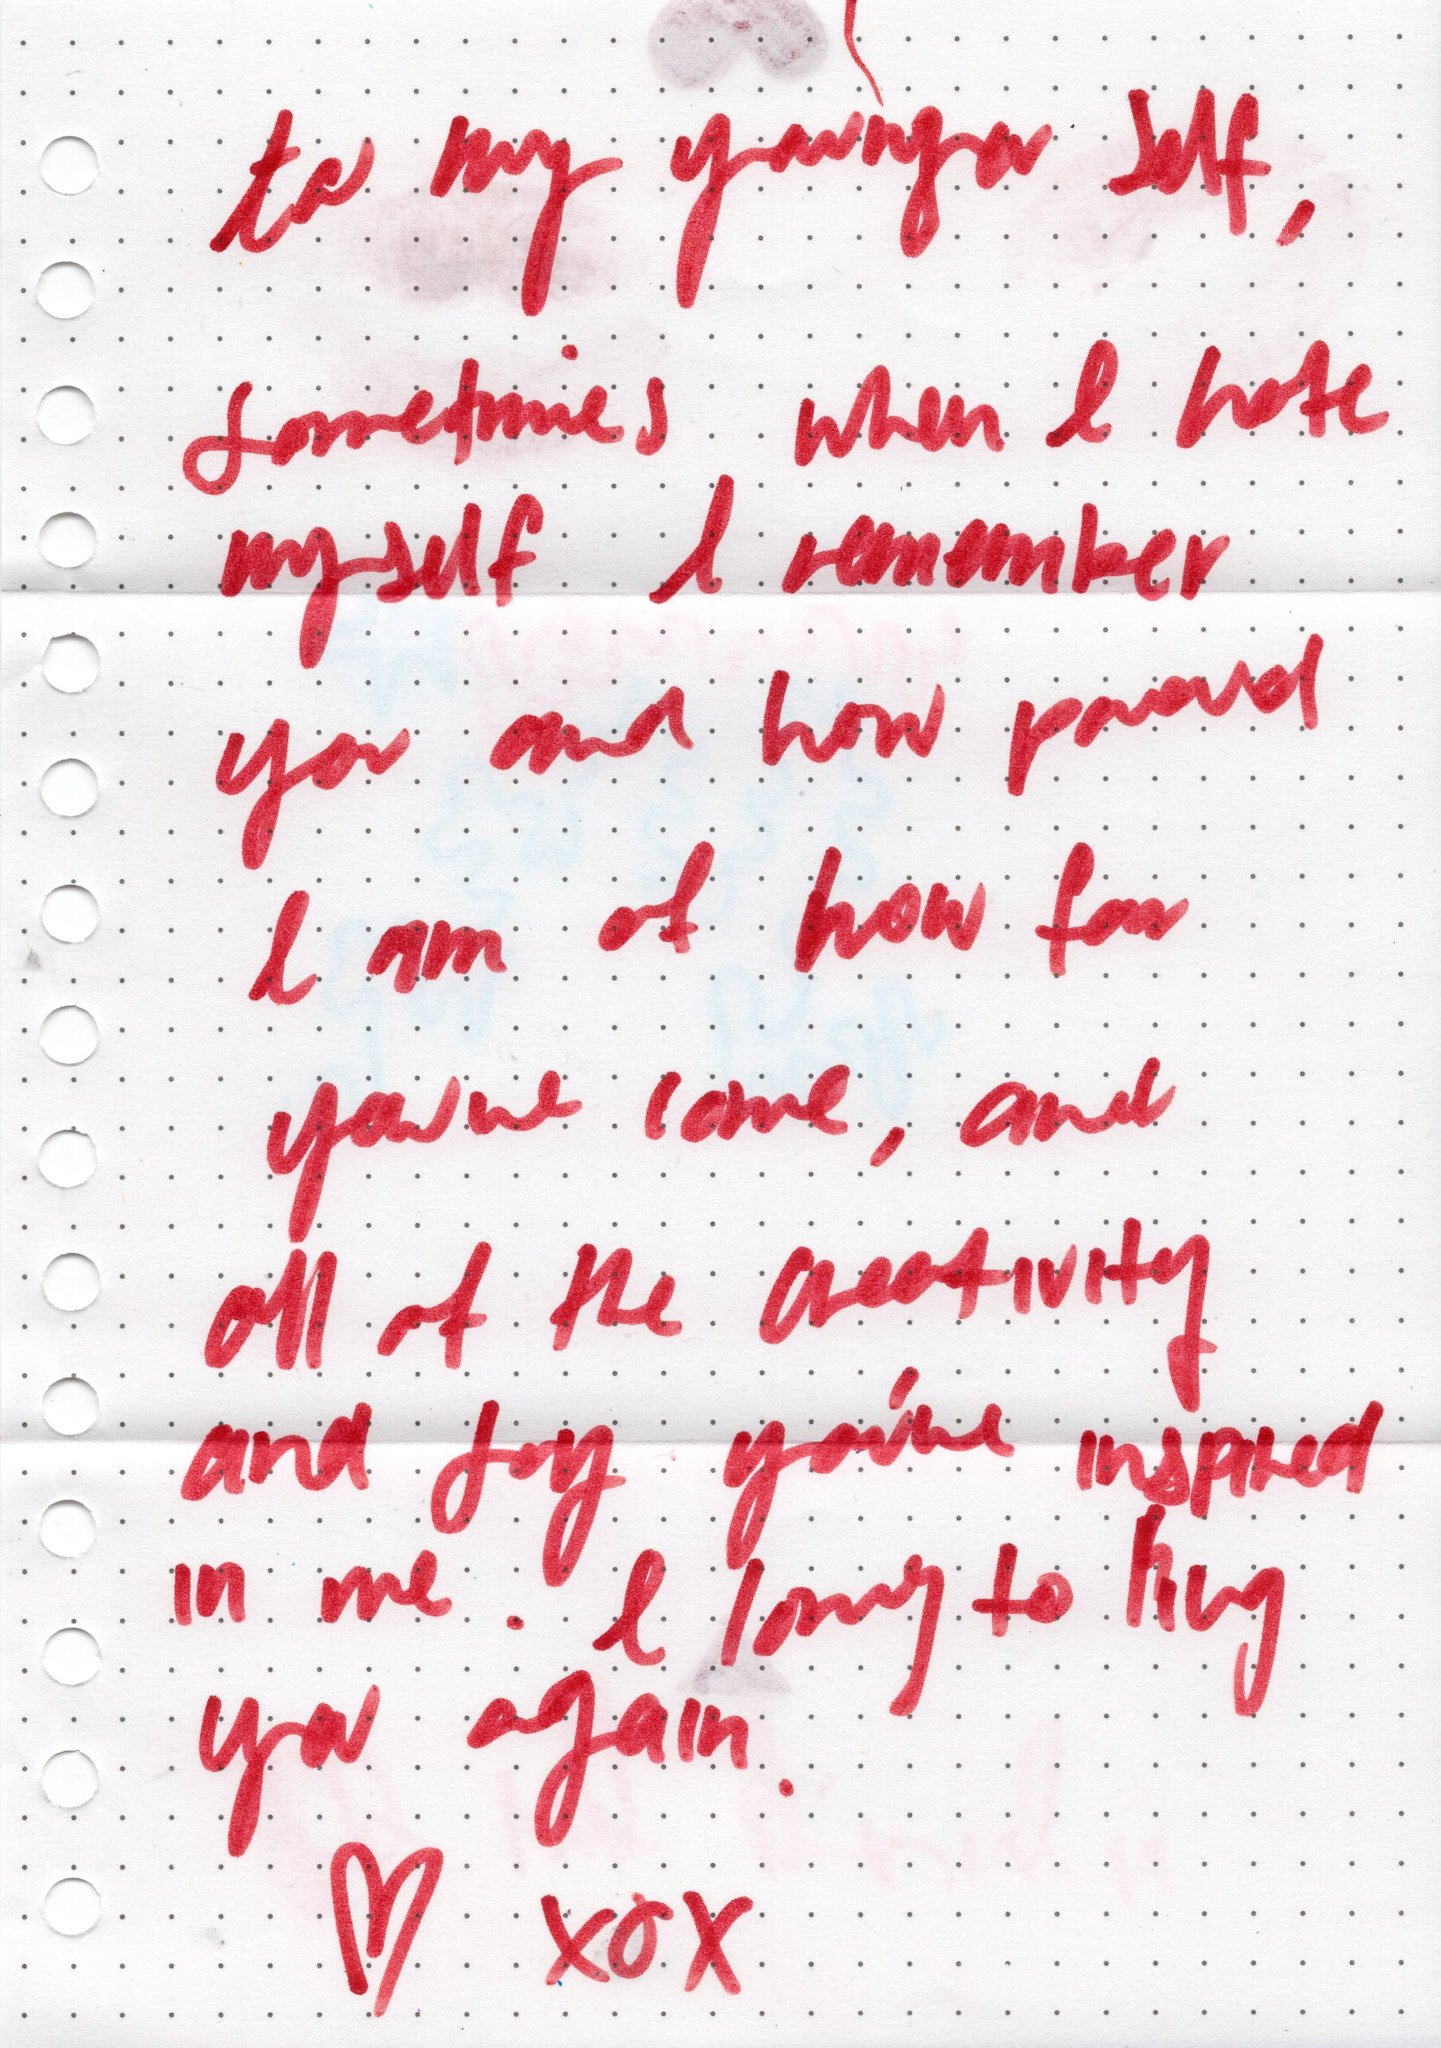 to my younger self,
sometimes when I hate
myself I remember
you and how proud
I am of how far
you've come, and
all of the creativity
and joy you've inspired
in me. I long to
you again.
xox